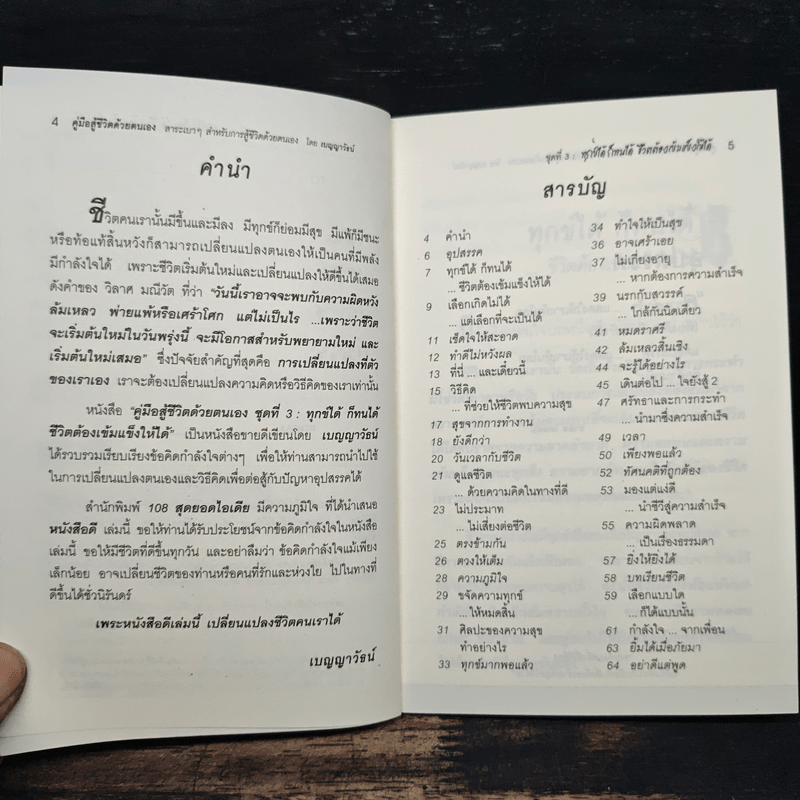 4 คู่มือสู้ชีวิตด้วยตนเอง สาระเบาๆ สำหรับการสู้ชีวิตด้วยตนเอง โดย เบญญาวัธน์
คำนำ
ชีวิตคนเรานั้นมีขึ้นและมีลง มีทุกข์ก็ย่อมมีสุข มีแพ้ก็มีชนะ
หรือท้อแท้สิ้นหวังก็สามารถเปลี่ยนแปลงตนเองให้เป็นคนที่มีพลัง
มีกำลังใจได้ เพราะชีวิตเริ่มต้นใหม่และเปลี่ยนแปลงให้ดีขึ้นได้เสมอ
ดังคำของ วิลาศ มณีวัต ที่ว่า "วันนี้เราอาจจะพบกับความผิดหวัง
ล้มเหลว พ่ายแพ้หรือเศร้าโศก แต่ไม่เป็นไร ...เพราะว่าชีวิต
จะเริ่มต้นใหม่ในวันพรุ่งนี้ จะมีโอกาสสำหรับพยายามใหม่ และ
เริ่มต้นใหม่เสมอ" ซึ่งปัจจัยสำคัญที่สุดคือ การเปลี่ยนแปลงที่ตัว
ของเราเอง เราจะต้องเปลี่ยนแปลงความคิดหรือวิธีคิดของเราเท่านั้น
หนังสือ "คู่มือสู้ชีวิตด้วยตนเอง ชุดที่ 3 : ทุกข์ได้ ก็ทนได้
ชีวิตต้องเข้มแข็งให้ได้" เป็นหนังสือขายดีเขียนโดย เบญญาวัธน์
ได้รวบรวมเรียบเรียงข้อคิดกำลังใจต่างๆ เพื่อให้ท่านสามารถนำไปใช้
ในการเปลี่ยนแปลงตนเองและวิธีคิดเพื่อต่อสู้กับปัญหาอุปสรรคได้
สำนักพิมพ์ 108 สุดยอดไอเดีย มีความภูมิใจ ที่ได้นำเสนอ
หนังสือดี เล่มนี้ ขอให้ท่านได้รับประโยชน์จากข้อคิดกำลังใจในหนังสือ
เล่มนี้ ขอให้มีชีวิตที่ดีขึ้นทุกวัน และอย่าลืมว่า ข้อคิดกำลังใจแม้เพียง
เล็กน้อย อาจเปลี่ยนชีวิตของท่านหรือคนที่รักและห่วงใย ไปในทางที่
ดีขึ้นได้ชั่วนิรันดร์
เพระหนังสือดีเล่มนี้ เปลี่ยนแปลงชีวิตคนเราได้
เบญญาวัธน์
ชุดที่ 3 : ทุกข์ได้ ก็ทนได้ ชีวิตต้องเข้มแข็งให้ได้ 5
สารบัญ
4 คำนำ
6 อุปสรรค
7 ทุกข์ได้ ก็ทนได้
...ชีวิตต้องเข้มแข็งให้ได้
9 เลือกเกิดไม่ได้
... แต่เลือกที่จะเป็นได้
11 เช็ดใจให้สะอาด
12 ทำดีไม่หวังผล
13 ที่นี่ ... และเดี๋ยวนี้
15 วิธีคิด
... ที่ช่วยให้ชีวิตพบความสุข
17 สุขจากการทำงาน
18 ยังดีกว่า
20 วันเวลากับชีวิต
21 ดูแลชีวิต
... ด้วยความคิดในทางที่ดี
23 ไม่ประมาท
... ไม่เสี่ยงต่อชีวิต
25 ตรงข้ามกัน
26 ตวงให้เต็ม
28 ความภูมิใจ
29 ขจัดความทุกข์
... ให้หมดสิ้น
31 ศิลปะของความสุข
ทำอย่างไร
33 ทุกข์มากพอแล้ว
34 ทำใจให้เป็นสุข
36 อาจเศร้าเอย
37 ไม่เกี่ยงอายุ
... หากต้องการความสำเร็จ
39 นรกกับสวรรค์
... ใกล้กันนิดเดียว
41 หมดราศรี
42 ล้มเหลวสิ้นเชิง
44 จะรู้ได้อย่างไร
45 เดินต่อไป ... ใจยังสู้ 2
47 ศรัทธาและการกระทำ
... นำมาซึ่งความสำเร็จ
49 เวลา
50 เพียงพอแล้ว
52 ทัศนคติที่ถูกต้อง
53 มองแต่แง่ดี
... นำชีวีสู่ความสำเร็จ
55 ความผิดพลาด
... เป็นเรื่องธรรมดา
57 ยิ่งให้ยิ่งได้
58 บทเรียนชีวิต
59 เลือกแบบใด
... ก็ได้แบบนั้น
61 กำลังใจ ... จากเพื่อน
63 ยิ้มได้เมื่อภัยมา
64 อย่าดีแต่พูด